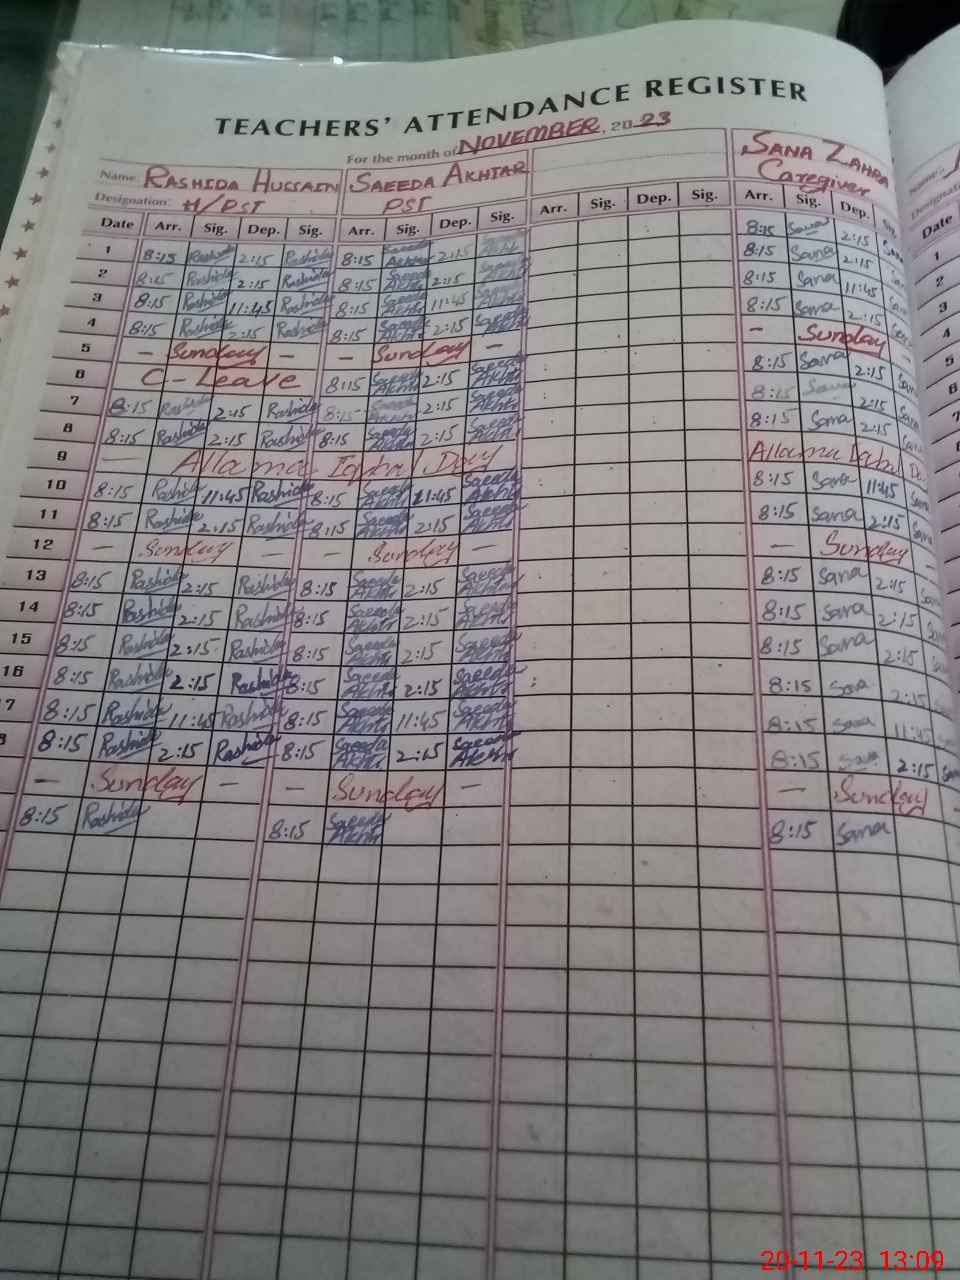 TEACHERS' ATTENDANCE REGISTER
For the month of NOVEMBER, 2023
Name: RASHIDA HUSSAIN SAEEDA AKHTAR SANA ZAHRA
Designation: H/PST PST Caregiver
Date Arr. Sig. Dep. Sig. Arr. Sig. Dep. Sig. Arr. Sig. Dep. Sig. Arr. Sig. Dep. Sig.
1 8:15 Rashida 2:15 Rashida 8:15 Saeeda Akhtr 2:15 8:15 Sana 2:15 Sana
2 8:15 Rashida 2:15 Rashida 8:15 Saeeda Akhtr 2:15 Saeeda Akhtr 8:15 Sana 2:15 Sana
3 8:15 Rashida 11:45 Rashida 8:15 Saeeda Akhtr 11:45 Saeeda Akhtr 8:15 Sana 11:45 Sana
4 8:15 Rashida 2:15 Rashida 8:15 Saeeda Akhtr 2:15 Saeeda Akhtr 8:15 Sana 2:15 Sana
5 - Sunday - - Sunday - - Sunday -
6 C-Leave 8:15 Saeeda Akhtr 2:15 Saeeda Akhtr 8:15 Sana 2:15 Sana
7 8:15 Rashida 2:15 Rashida 8:15 Saeeda Akhtr 2:15 Saeeda Akhtr 8:15 Sana 2:15 Sana
8 8:15 Rashida 2:15 Rashida 8:15 Saeeda Akhtr 2:15 Saeeda Akhtr 8:15 Sana 2:15 Sana
9 — Allama Iqbal Day Allama Iqbal Da
10 8:15 Rashida 11:45 Rashida 8:15 Saeeda Akhtr 11:45 Saeeda Akhtr 8:15 Sana 11:45 Sana
11 8:15 Rashida 2:15 Rashida 8:15 Saeeda Akhtr 2:15 Saeeda Akhtr 8:15 Sana 2:15 Sana
12 - Sunday - - Sunday - - Sunday -
13 8:15 Rashida 2:15 Rashida 8:15 Saeeda Akhtr 2:15 Saeeda Akhtr 8:15 Sana 2:15 Sana
14 8:15 Rashida 2:15 Rashida 8:15 Saeeda Akhtr 2:15 Saeeda Akhtr 8:15 Sana 2:15 Sana
15 8:15 Rashida 2:15 Rashida 8:15 Saeeda Akhtr 2:15 Saeeda Akhtr 8:15 Sana 2:15 Sana
16 8:15 Rashida 2:15 Rashida 8:15 Saeeda Akhtr 2:15 Saeeda Akhtr 8:15 Sana 2:15
7 8:15 Rashida 11:45 Rashida 8:15 Saeeda Akhtr 11:45 Saeeda Akhtr 8:15 Sana 11:45
8 8:15 Rashida 2:15 Rashida 8:15 Saeeda Akhtr 2:15 Saeeda Akhtr 8:15 Sana 2:15 Sana
- Sunday - - Sunday - - Sunday
8:15 Rashida 8:15 Saeeda Akhtr 8:15 Sana
Name:
Designation
Date
1
2
3
4
5
6
20-11-23 13:09